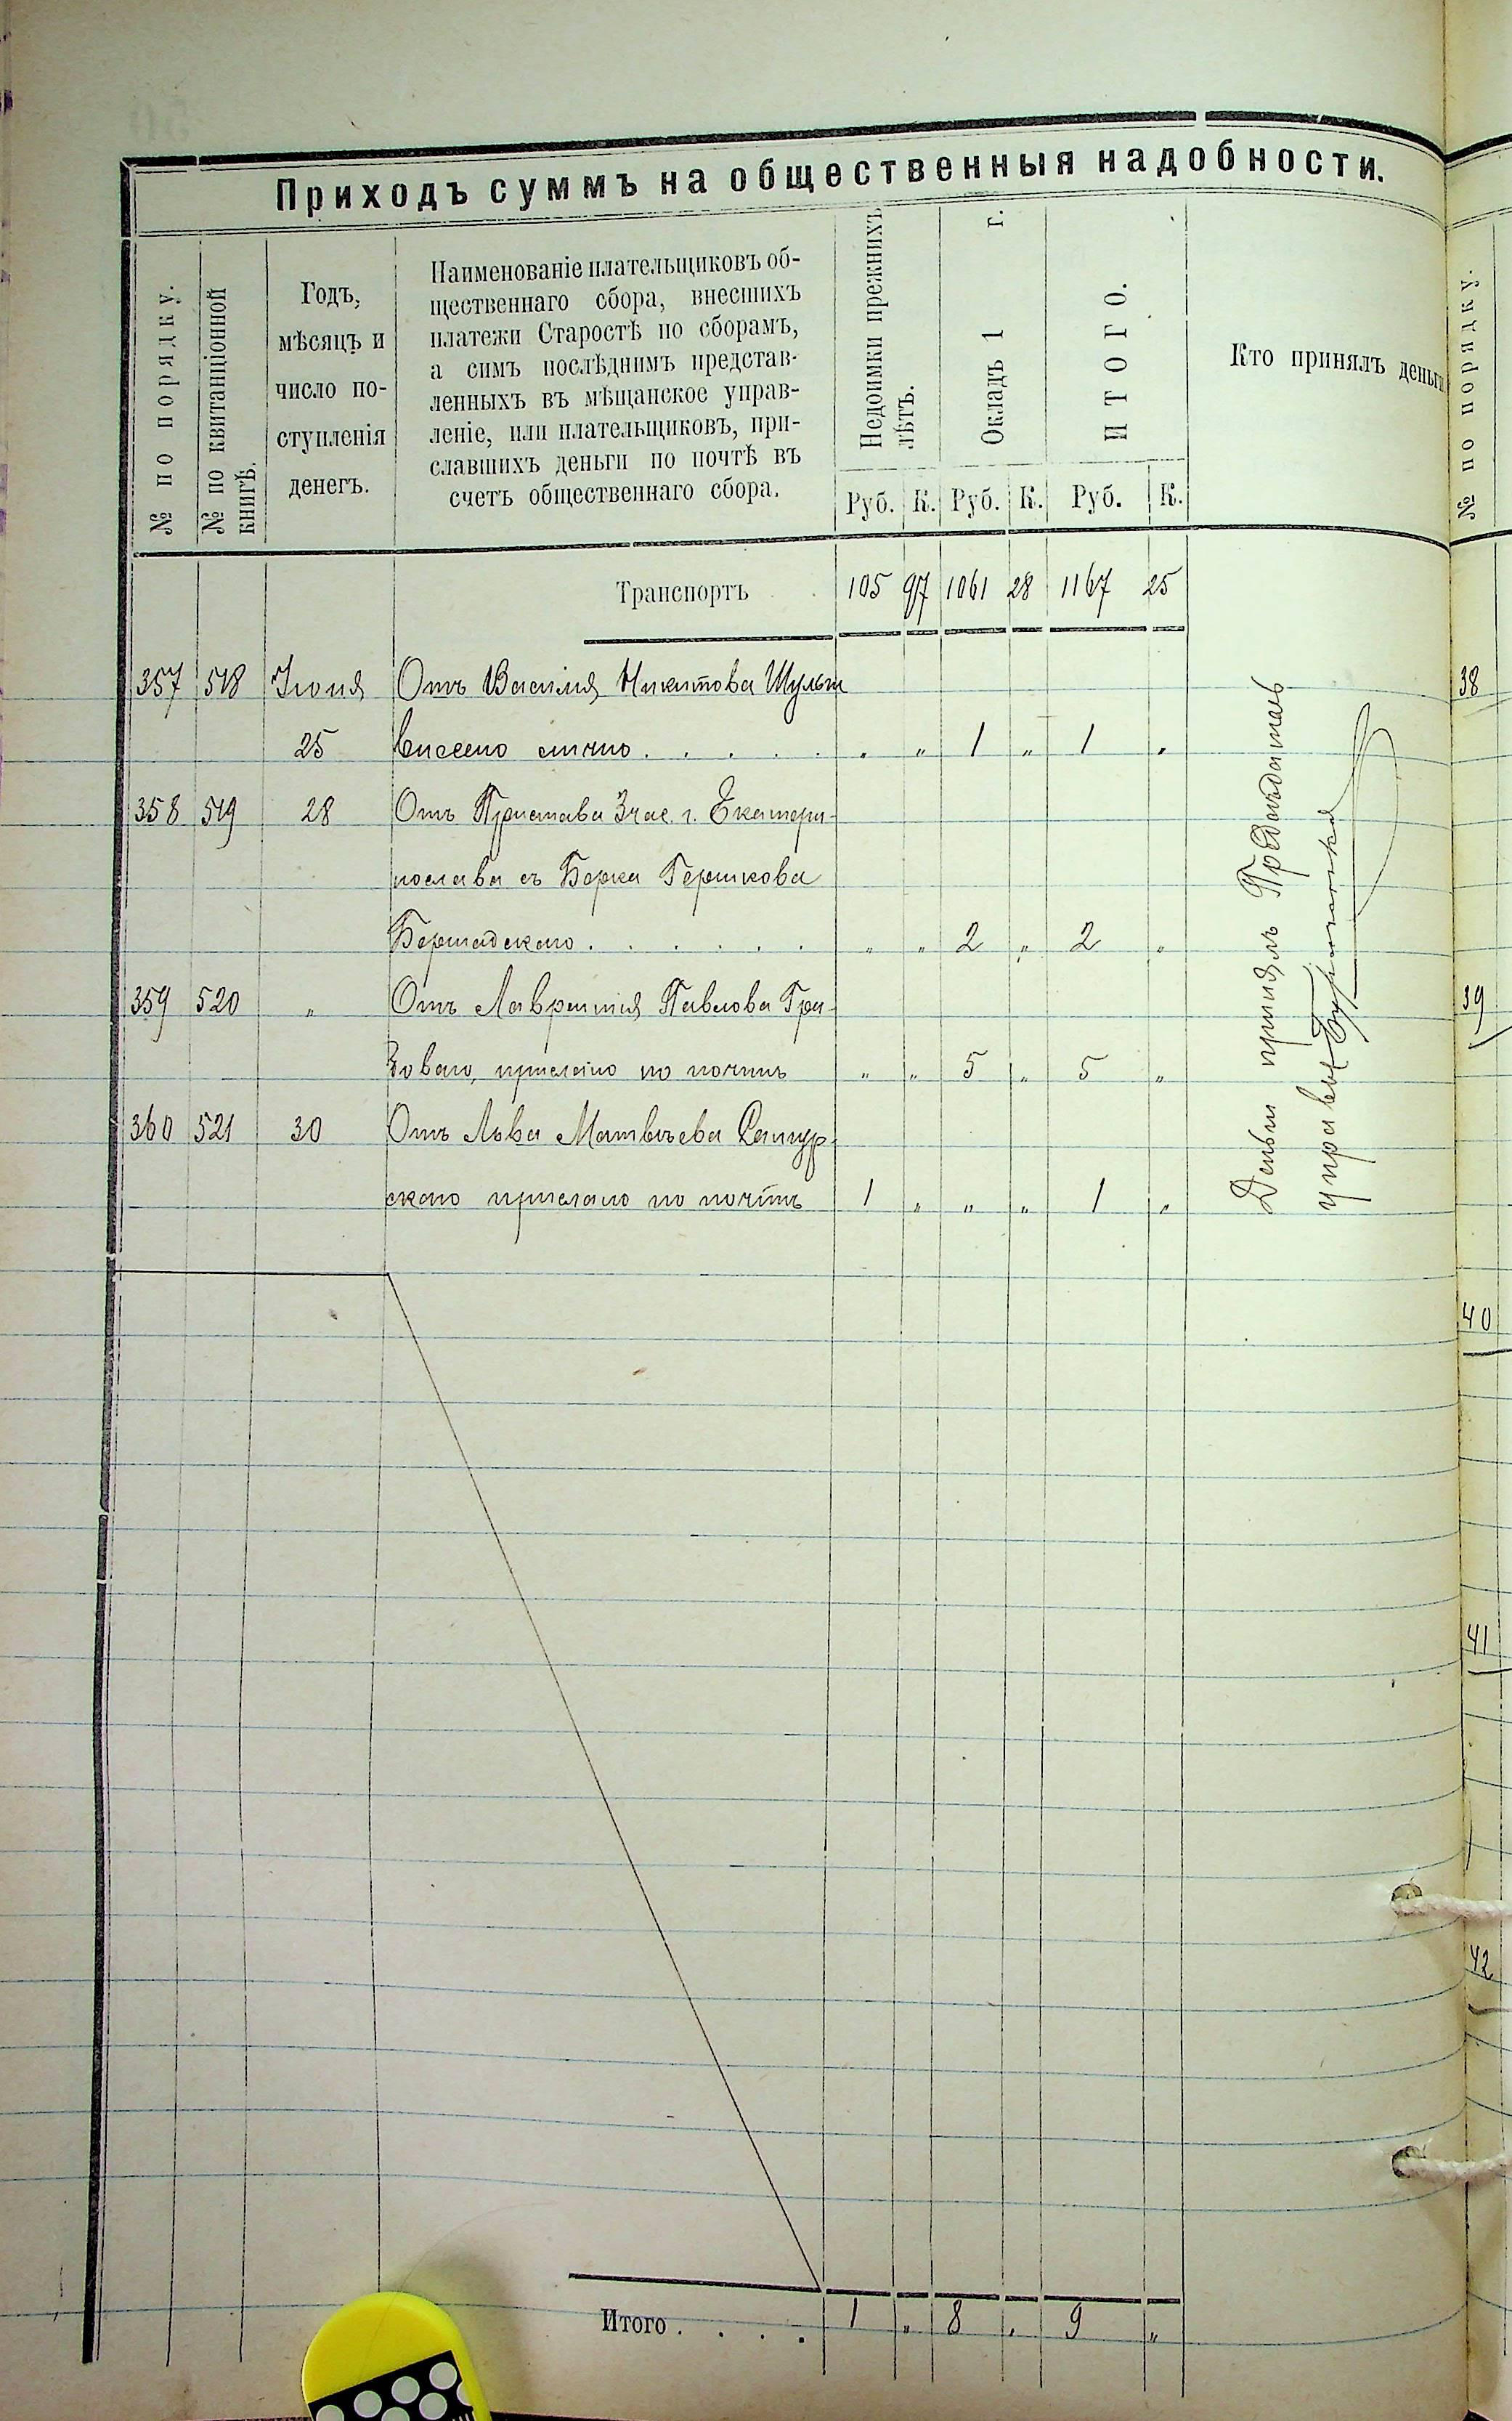 Приходъ суммъ на общественныя надобности.
№ по порядку.
№ по квитанціонной
книгѣ.
Годъ,
мѣсяцъ и
число по-
ступленія
денегъ.
Наименованіе плательщиковъ об-
щественнаго сбора, внесшихъ
платежи Старостѣ по сборамъ,
а симъ послѣднимъ представ-
ленныхъ въ мѣщанское управ-
леніе, или плательщиковъ, при-
славшихъ деньги по почтѣ въ
счетъ общественнаго сбора.
Недоимки прежнихъ
лѣтъ.
Окладъ 1 г.
ИТОГО.
Руб. К. Руб. К. Руб. К.
Кто принялъ деньги
Транспортъ 105 97 1061 28 1167 25
357 518 Іюня Отъ Василія Никитова
25 внесено лично . . . . . „ „ 1 „ 1 „
358 519 28 Отъ Пристава 3 час. г. Екатери-
нослава съ Берка Гершкова
Бершадскаго . . . . . . „ „ 2 „ 2 „
359 520 „ Отъ Лаврентія Павлова Гра-
зоваго, прислано по почтѣ „ „ 5 „ 5 „
360 521 30 Отъ Льва Матвѣева
скаго прислано по почтѣ 1 „ „ „ 1 „
Деньги принялъ Предсѣдатель
управы
Итого . . . . 1 „ 8 „ 9 „
№ по порядку.
38
39
40
41
42